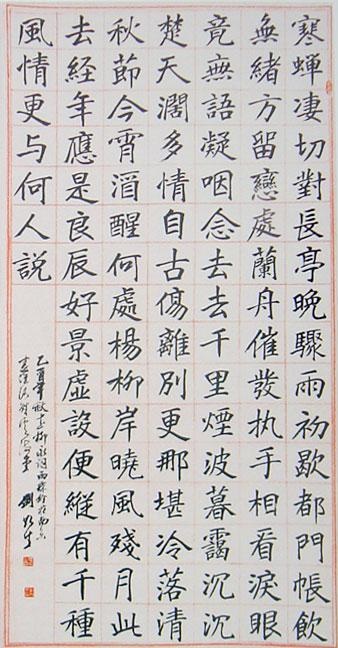 寒蟬凄切對長亭晚驟雨初歇都門帳飲
無緒方留戀處蘭舟催發执手相看淚眼
竟無語凝咽念去去千里煙波暮靄沉沉
楚天濶多情自古傷離別更那堪冷落清
秋節今宵酒醒何處楊柳岸曉風殘月此
去経年應是良辰好景虛設便縱有千種
風情更与何人説
乙酉年秋書柳永詞雨霖鈴於南京
劉